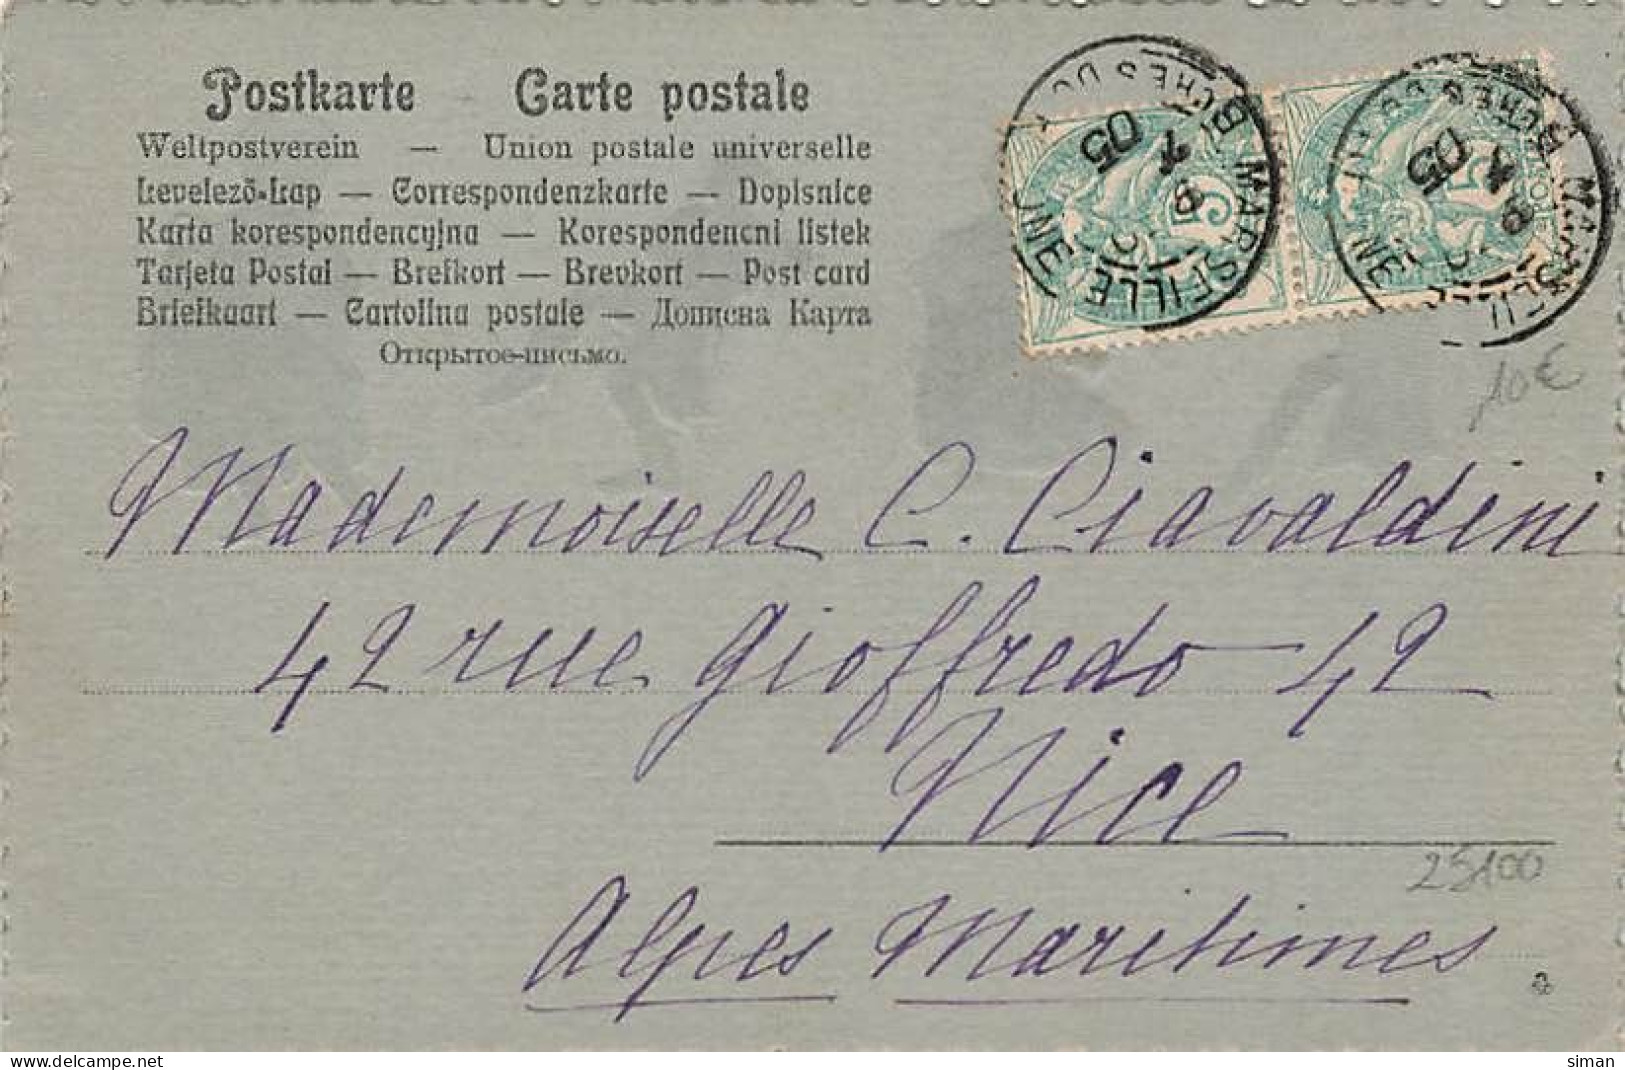 Postkarte Carte postale
Weltpostverein — Union postale universelle
Levelezõ-Lap — Correspondenzkarte — Dopisnice
Karta korespondencyjna — Korespondencni listek
Tarjeta Postal — Brefkort — Brevkort — Post card
Briefkaart — Cartolina postale — Дописна Карта
Открытое-письмо.
MARSEILLE
BCHES DU
05
5
MARSEILLE
BCHES DU
05
5
10€
Mademoiselle C. Ciavaldini
42 rue Gioffredo 42
Nice
25100
Alpes Maritimes
siman